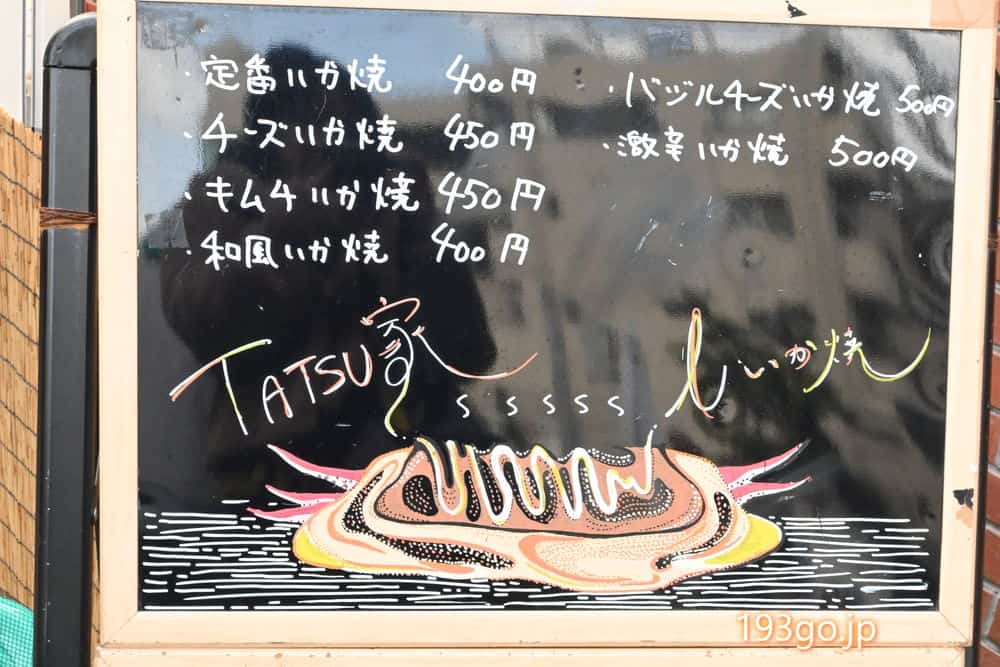 ・定番いか焼 400円
・チーズいか焼 450円
・キムチいか焼 450円
・和風いか焼 400円
・バジルチーズいか焼 500円
・激辛いか焼 500円
TATSU家
いか焼
sssss
193go.jp